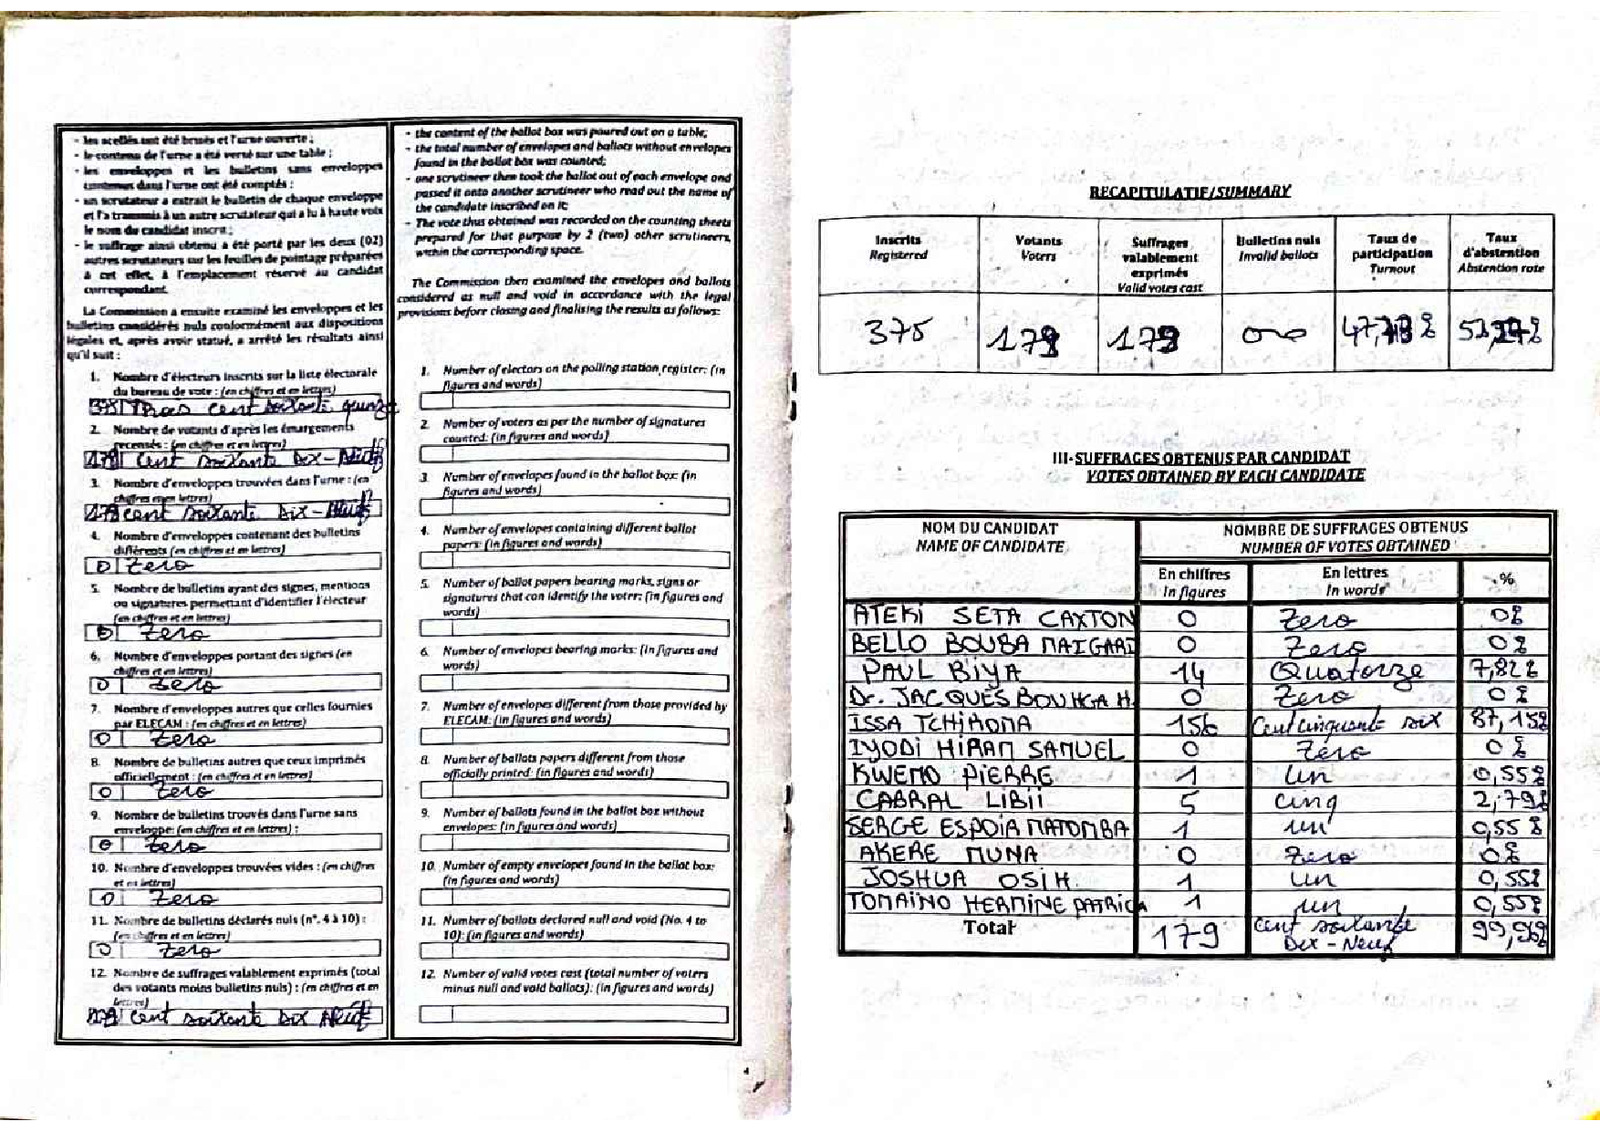 - les scellés ont été brisés et l'urne ouverte ;
- le contenu de l'urne a été versé sur une table ;
- les enveloppes et les bulletins sans enveloppes
contenus dans l'urne ont été comptés ;
- un scrutateur a extrait le bulletin de chaque enveloppe
et l'a transmis à un autre scrutateur qui a lu à haute voix
le nom du candidat inscrit ;
- le suffrage ainsi obtenu a été porté par les deux (02)
autres scrutateurs sur les feuilles de pointage préparées
à cet effet, à l'emplacement réservé au candidat
correspondant.
La Commission a ensuite examiné les enveloppes et les
bulletins considérés nuls conformément aux dispositions
légales et, après avoir statué, a arrêté les résultats ainsi
qu'il suit :
1. Nombre d'électeurs inscrits sur la liste électorale
du bureau de vote : (en chiffres et en lettres)
375 Trois cent soixante quinze
2. Nombre de votants d'après les émargements
recensés : (en chiffres et en lettres)
179 cent soixante Dix-Neuf
3. Nombre d'enveloppes trouvées dans l'urne : (en
chiffres et en lettres)
179 cent soixante Dix-Neuf
4. Nombre d'enveloppes contenant des bulletins
différents (en chiffres et en lettres)
0 Zero
5. Nombre de bulletins ayant des signes, mentions
ou signatures permettant d'identifier l'électeur
(en chiffres et en lettres)
0 Zero
6. Nombre d'enveloppes portant des signes (en
chiffres et en lettres)
0 Zero
7. Nombre d'enveloppes autres que celles fournies
par ELECAM : (en chiffres et en lettres)
0 Zero
8. Nombre de bulletins autres que ceux imprimés
officiellement : (en chiffres et en lettres)
0 Zero
9. Nombre de bulletins trouvés dans l'urne sans
enveloppe: (en chiffres et en lettres) :
0 Zero
10. Nombre d'enveloppes trouvées vides : (en chiffres
et en lettres)
0 Zero
11. Nombre de bulletins déclarés nuls (n°. 4 à 10) :
(en chiffres et en lettres)
0 Zero
12. Nombre de suffrages valablement exprimés (total
des votants moins bulletins nuls) : (en chiffres et en
lettres)
179 cent soixante Dix Neuf
- the content of the ballot box was poured out on a table;
- the total number of envelopes and ballots without envelopes
found in the ballot box was counted;
- one scrutineer then took the ballot out of each envelope and
passed it onto another scrutineer who read out the name of
the candidate inscribed on it;
- The vote thus obtained was recorded on the counting sheets
prepared for that purpose by 2 (two) other scrutineers,
within the corresponding space.
The Commission then examined the envelopes and ballots
considered as null and void in accordance with the legal
provisions before closing and finalising the results as follows:
1. Number of electors on the polling station register: (in
figures and words)
2. Number of voters as per the number of signatures
counted: (in figures and words)
3. Number of envelopes found in the ballot box: (in
figures and words)
4. Number of envelopes containing different ballot
papers: (in figures and words)
5. Number of ballot papers bearing marks, signs or
signatures that can identify the voter: (in figures and
words)
6. Number of envelopes bearing marks: (in figures and
words)
7. Number of envelopes different from those provided by
ELECAM: (in figures and words)
8. Number of ballots papers different from those
officially printed: (in figures and words)
9. Number of ballots found in the ballot box without
envelopes: (in figures and words)
10. Number of empty envelopes found in the ballot box:
(in figures and words)
11. Number of ballots declared null and void (No. 4 to
10): (in figures and words)
12. Number of valid votes cast (total number of voters
minus null and void ballots): (in figures and words)
4
RECAPITULATIF/SUMMARY
Inscrits Registered
Votants Voters
Suffrages valablement exprimés Valid votes cast
Bulletins nuls Invalid ballots
Taux de participation Turnout
Taux d'abstention Abstention rate
375 179 179 000
III-SUFFRAGES OBTENUS PAR CANDIDAT
VOTES OBTAINED BY EACH CANDIDATE
NOM DU CANDIDAT NOMBRE DE SUFFRAGES OBTENUS
NAME OF CANDIDATE NUMBER OF VOTES OBTAINED
En chiffres En lettres %
In figures In words
ATEKI SETA CAXTON 0 Zero 0%
BELLO BOUBA MAIGARI 0 Zero 0%
PAUL BIYA 14 Quatorze 7,82%
Dr. JACQUES BOUHGA H. 0 Zero 0%
ISSA TCHIROMA 156 Cent cinquante six 87,15%
IYODI HIRAM SAMUEL 0 Zero 0%
KWEMO PIERRE 1 un 0,55%
CABRAL LIBII 5 cinq 2,79%
SERGE ESPOIR MATOMBA 1 un 0,55%
AKERE MUNA 0 Zero 0%
JOSHUA OSIH. 1 un 0,55%
TOMAINO HERMINE PATRICIA 1 un 0,55%
Total 179 cent soixante Dix-Neuf 99,96%
5